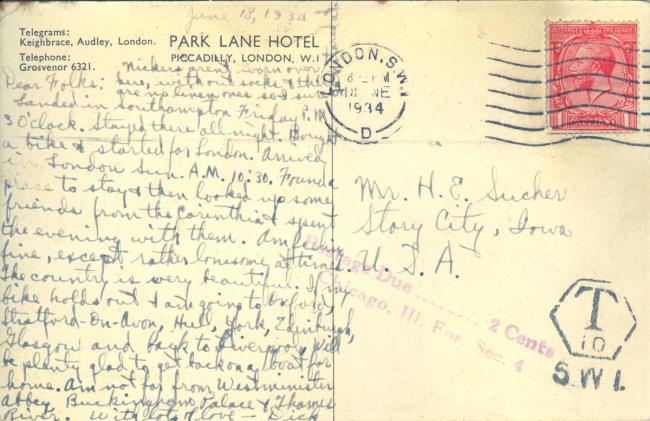 June 18, 1934
Telegrams:
Keighbrace, Audley, London.
Telephone:
Grosvenor 6321.
PARK LANE HOTEL
PICCADILLY, LONDON, W.1
Nickers aren't worn over
Dear Folks: here, without socks & there
are no linen ones so I
Landed in Southampton Friday P.M.
3 O'clock. Stayed there all night. Bought
a bike & started for London. Arrived
in London Sun. A.M. 10:30. Found a
place to stay & then looked up some
friends from the Carinthia & spent
the evening with them. Am
fine, except rather lonesome at times.
The country is very beautiful. If my
bike holds out I am going to Oxford,
Stratford-On-Avon, Hull, York, Edinburgh,
Glasgow and back to Liverpool, Will
be plenty glad to get back on a boat for
home. Am not far from Westminister
Abbey, Buckingham Palace & Thames
River. With lots of love - Dick
LONDON, S.W.1
8 - PM
18 JNE
1934
D
POSTAGE REVENUE
Mr. H. E. Sucher
Story City, Iowa
U. S. A.
Postage Due 2 Cents
Chicago, Ill. For. Sec. 4
T
10
S.W.1.